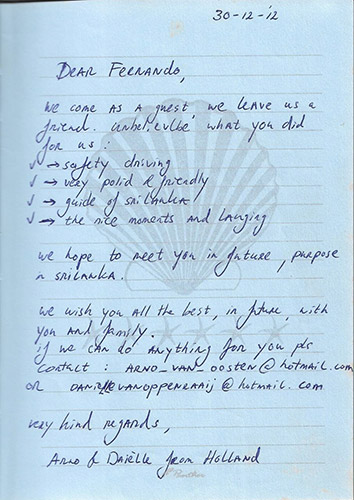 30-12-'12
DEAR FERNANDO,
we come as a guest, we leave us a
friend. unbelievlbe what you did
for us :
✓ → safety driving
✓ → very polid & friendly
✓ → guide of srilanka
✓ → the nice moments and lauging
we hope to meet you in future, purpose
in srilanka.
we wish you all the best, in future, with
you and family.
if we can do anything for you pls
contact : ARNO_VAN_OOSTEN@hotmail.com
OR DANIELLEVANOPPENRAAIJ@hotmail.com
very kind regards,
Arno & Daiëlle from HOLLAND